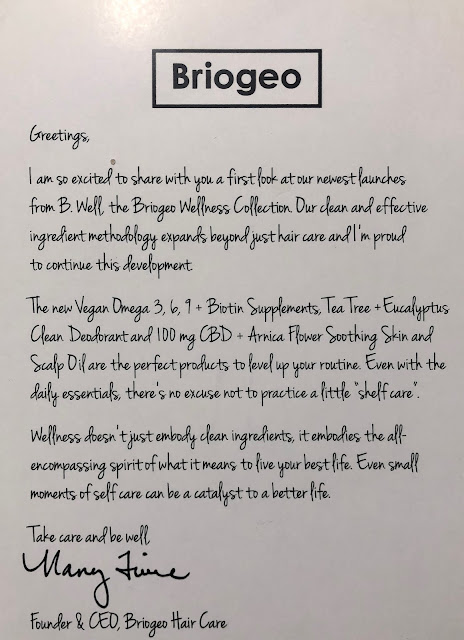 Briogeo
Greetings,
I am so excited to share with you a first look at our newest launches
from B. Well, the Briogeo Wellness Collection. Our clean and effective
ingredient methodology expands beyond just hair care and I'm proud
to continue this development.
The new Vegan Omega 3, 6, 9 + Biotin Supplements, Tea Tree + Eucalyptus
Clean Deodorant and 100 mg CBD + Arnica Flower Soothing Skin and
Scalp Oil are the perfect products to level up your routine. Even with the
daily essentials, there's no excuse not to practice a little "shelf care".
Wellness doesn't just embody clean ingredients, it embodies the all-
encompassing spirit of what it means to live your best life. Even small
moments of self care can be a catalyst to a better life.
Take care and be well,
Nancy Twine
Founder & CEO, Briogeo Hair Care